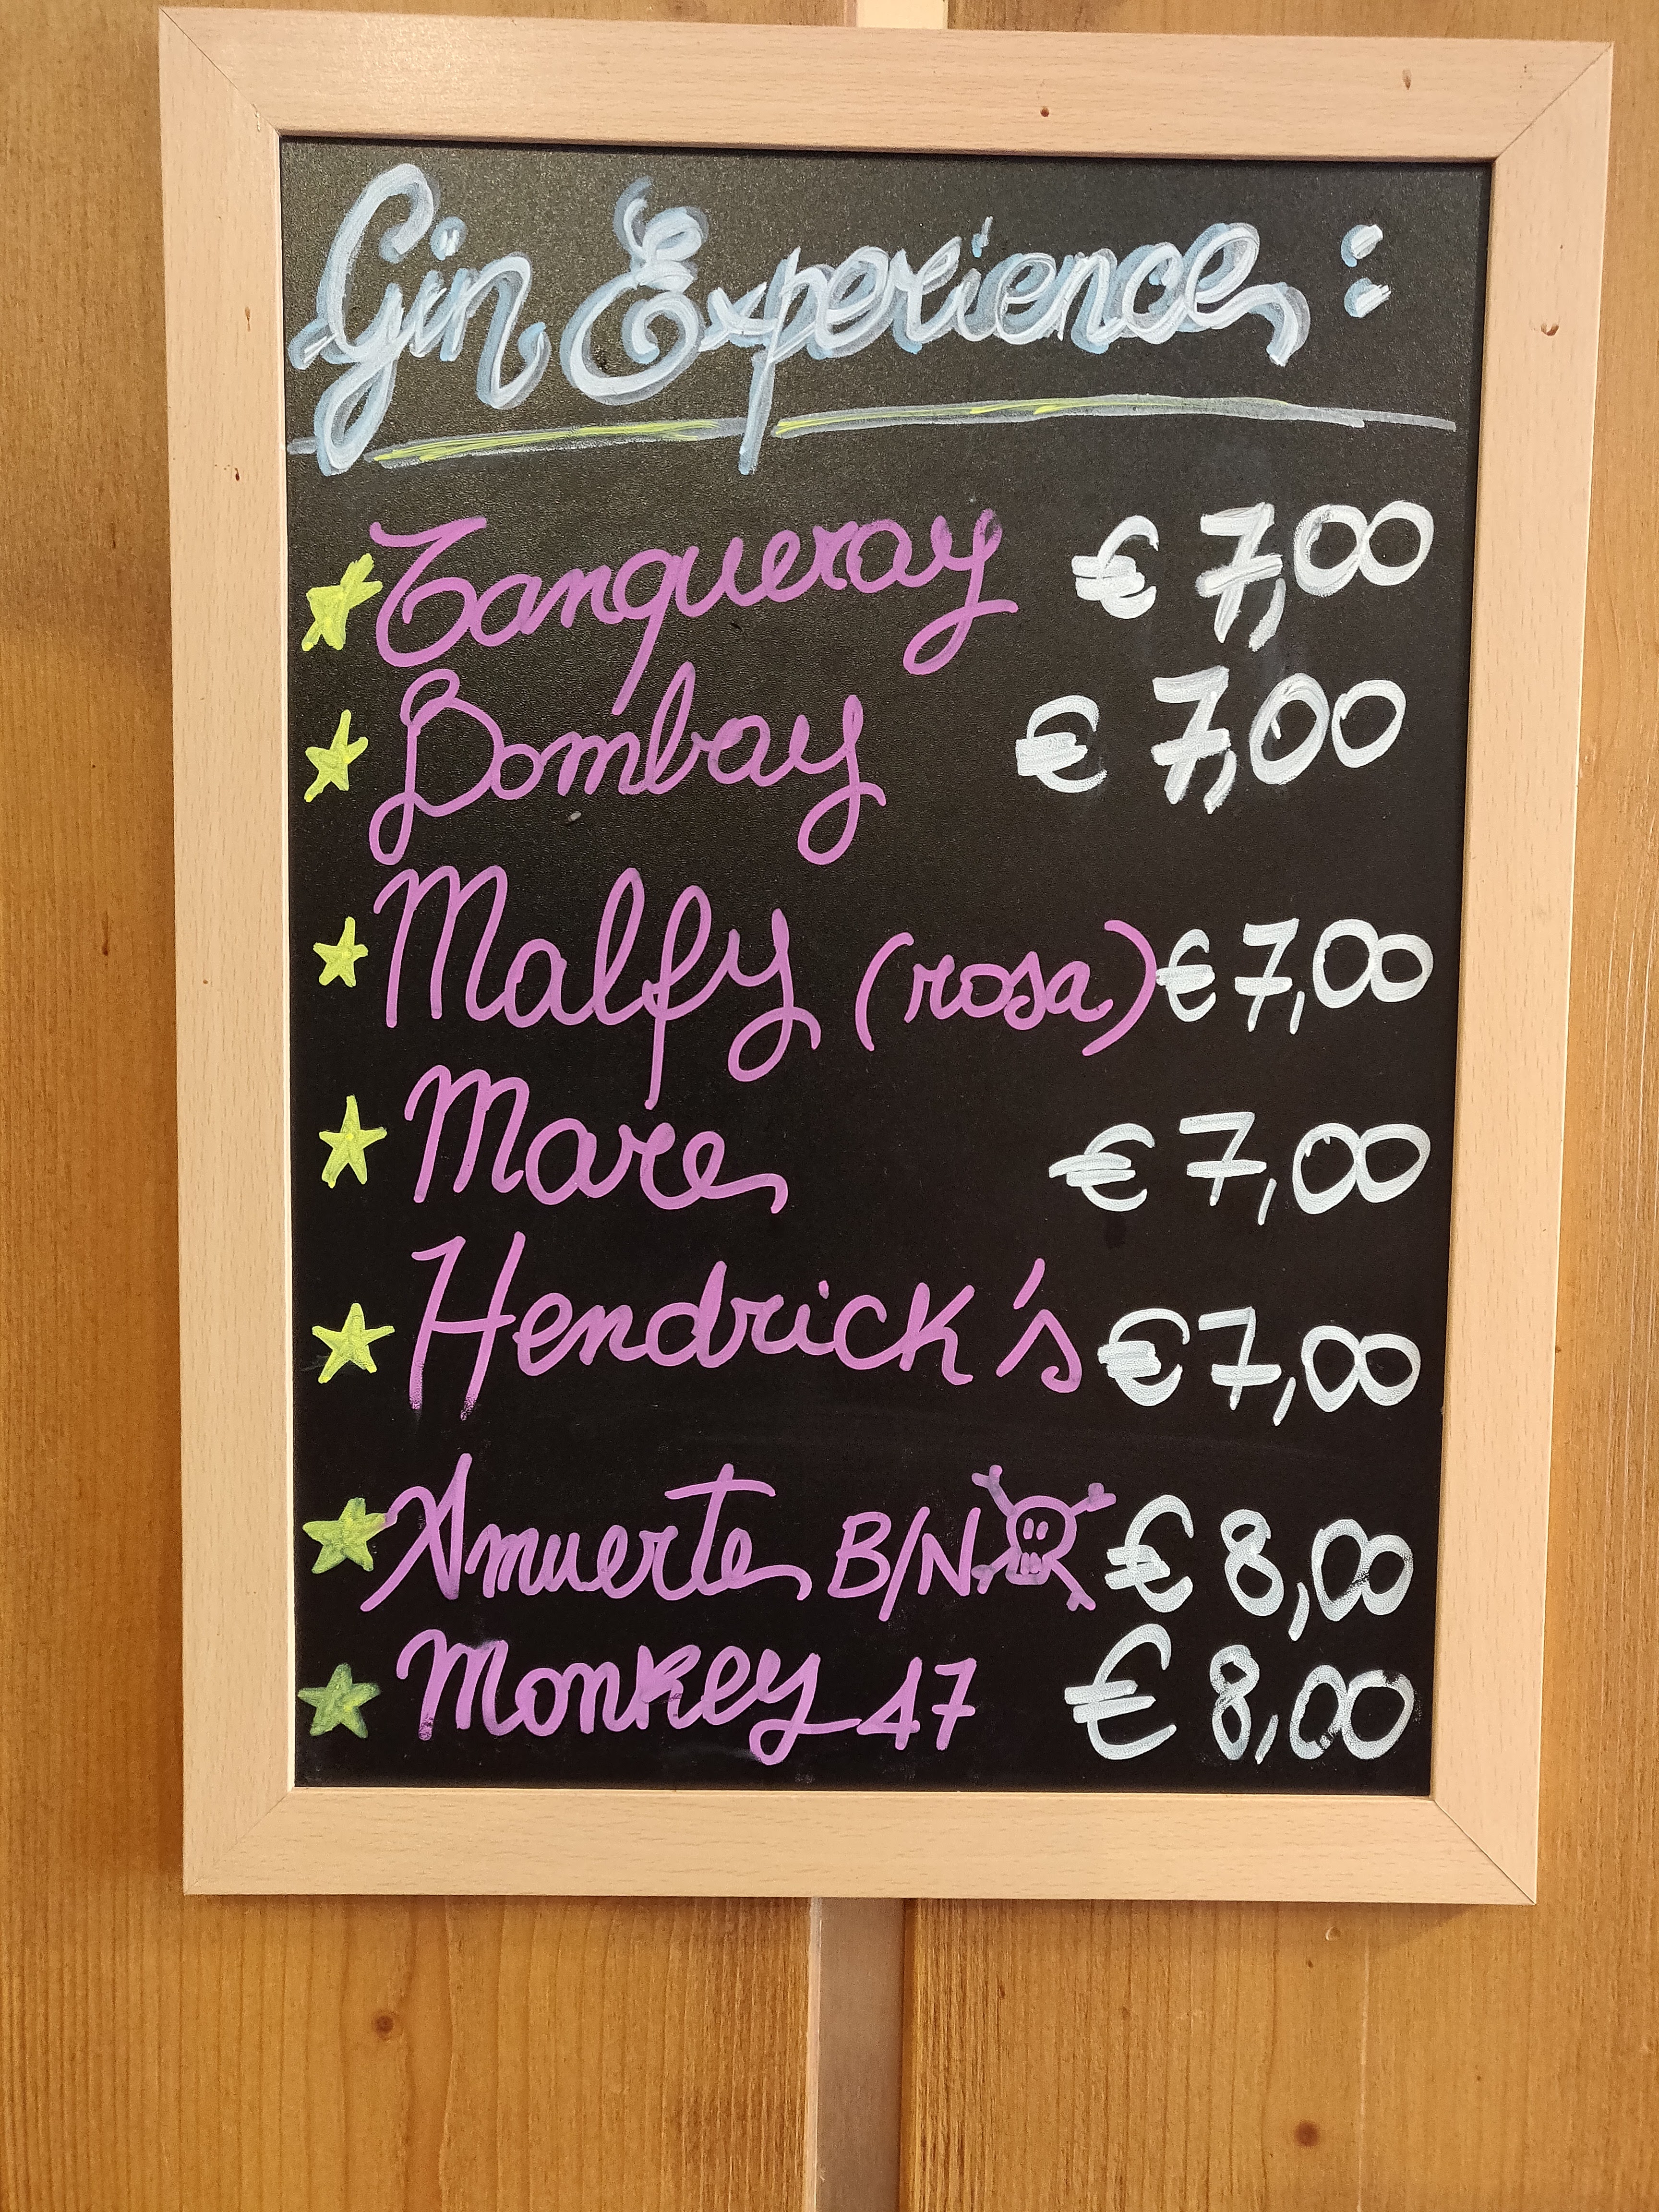 Gin Experience:
Tanqueray € 7,00
Bombay € 7,00
Malfy (rosa) € 7,00
Mare € 7,00
Hendrick's € 7,00
Amuerte B/N € 8,00
Monkey 47 € 8,00